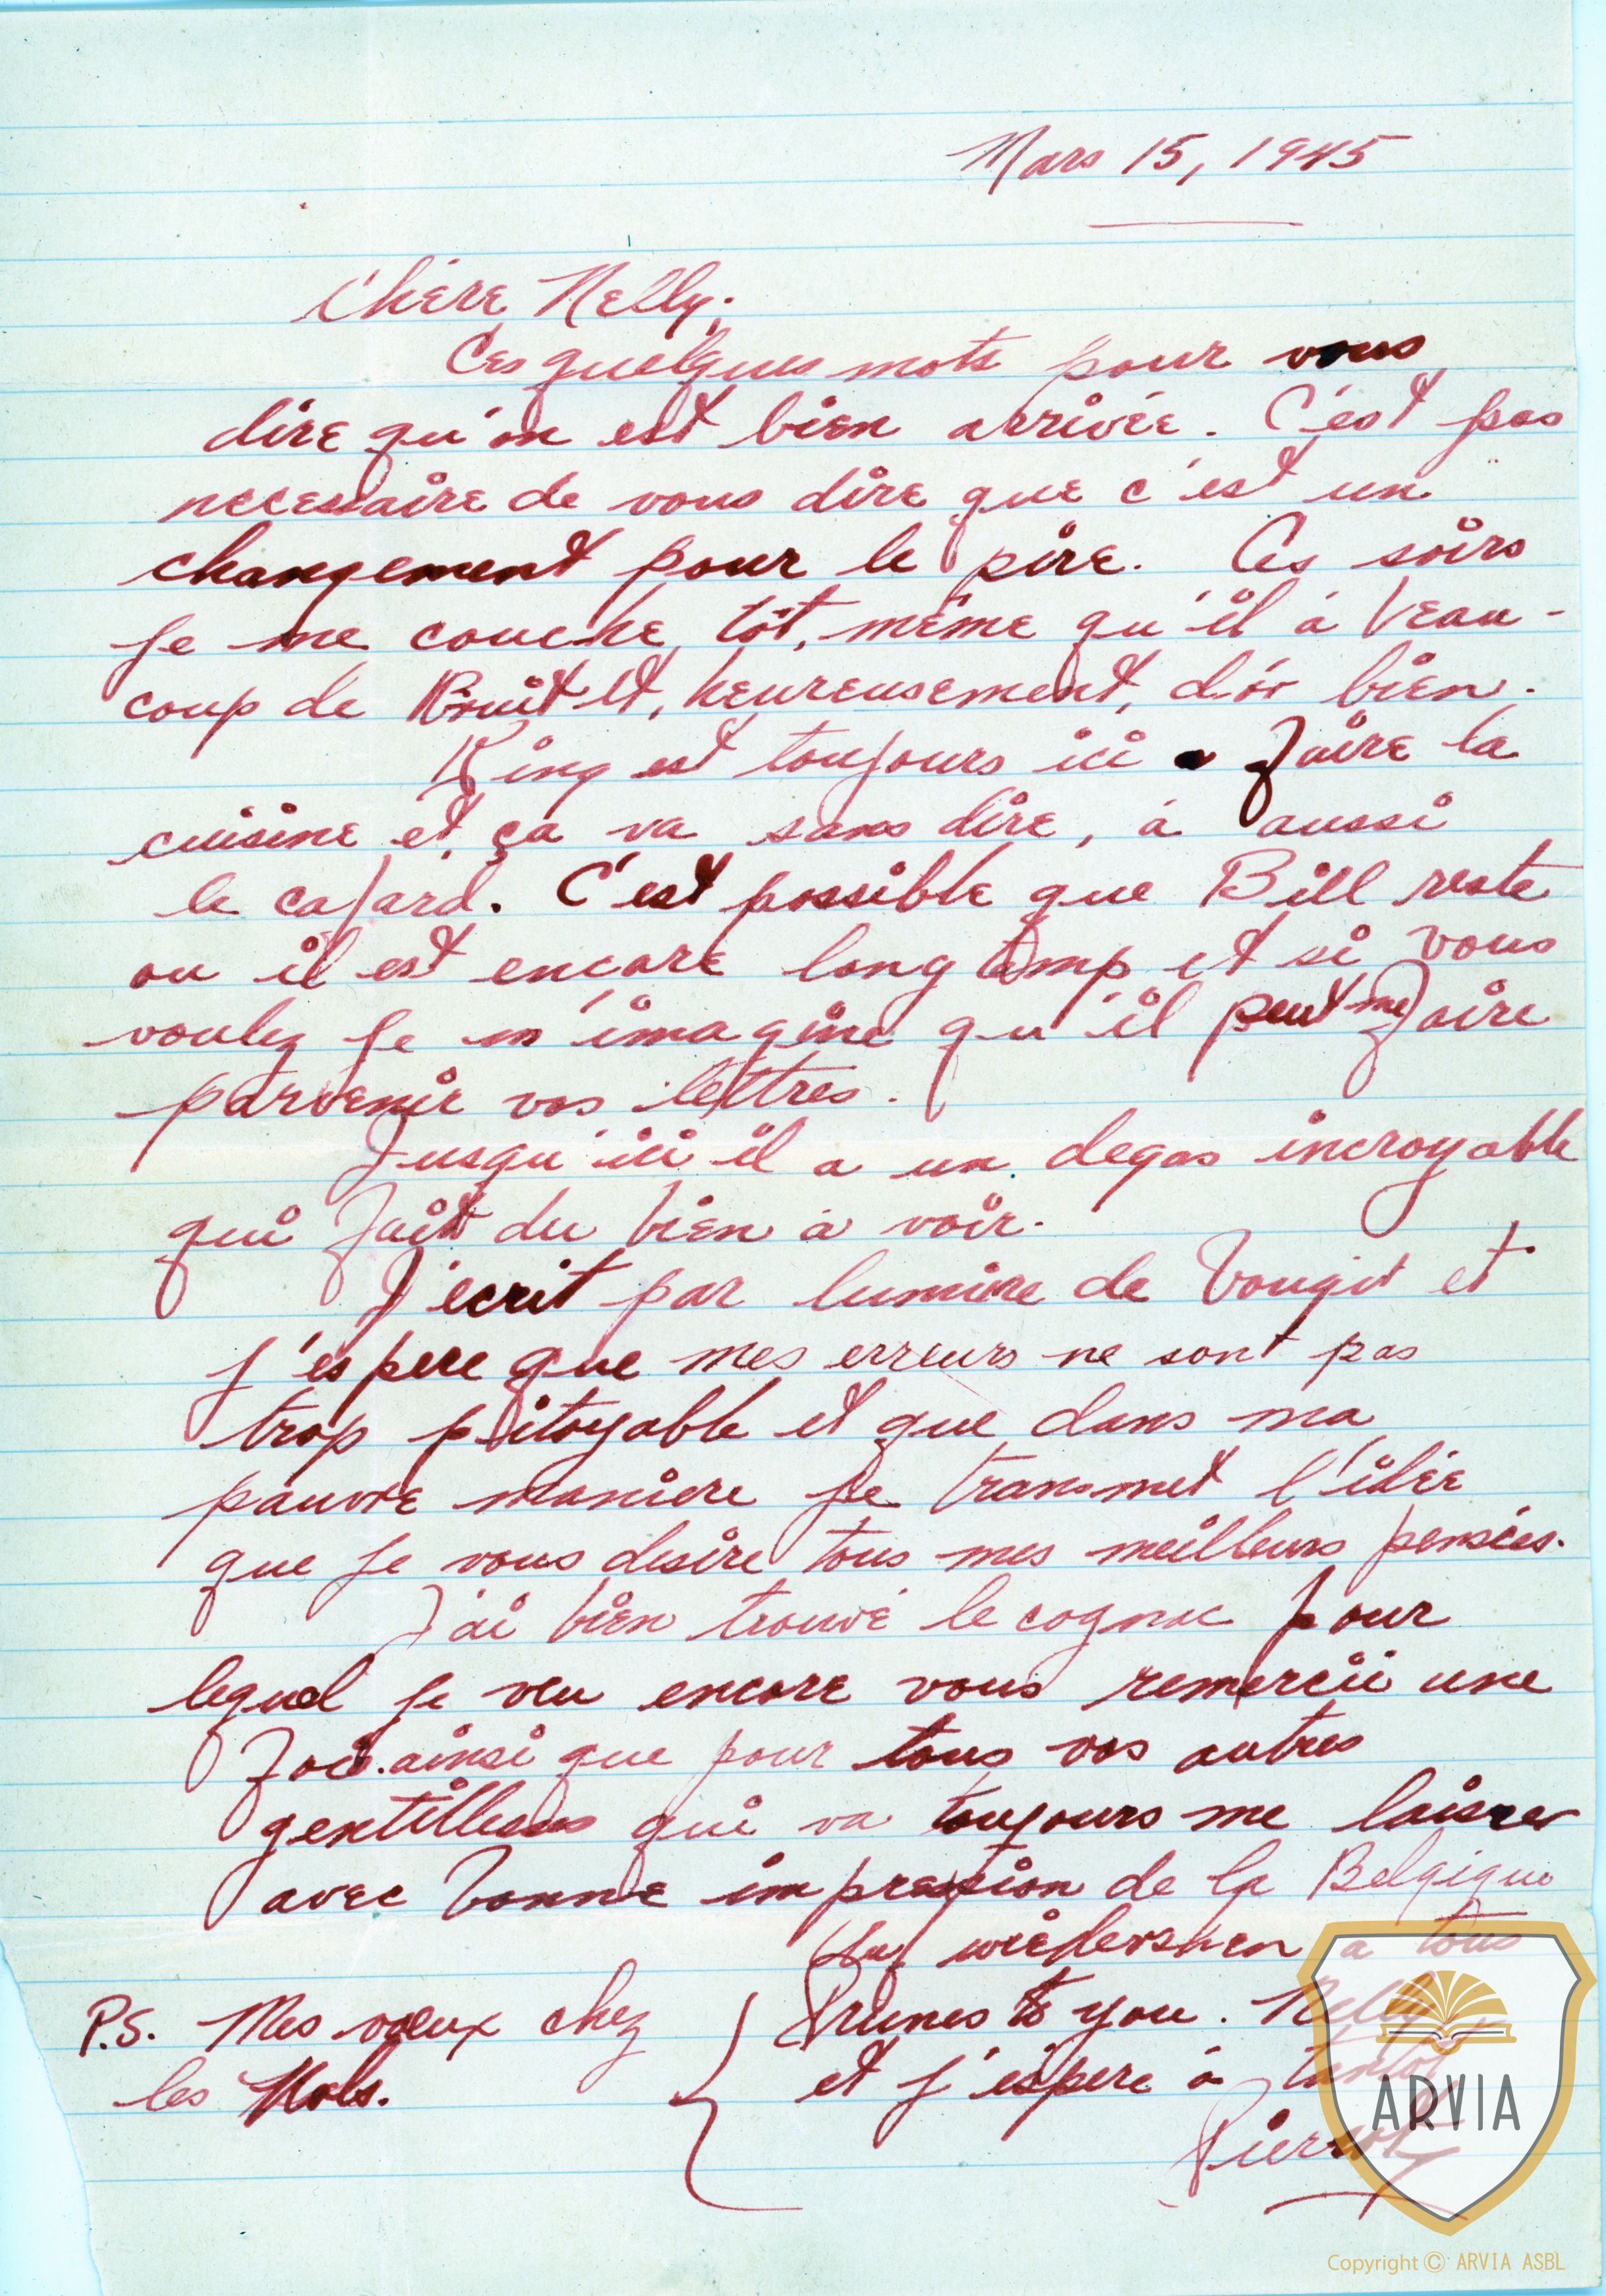 Mars 15, 1945
Chère Nelly.
Ces quelques mots pour vous
dire qu'on est bien arrivée. C'est pas
necessaire de vous dire que c'est un
changement pour le pire. Ces soirs
je me couche tôt, même qu'il à beau-
coup de Bruit et, heureusement, dór bien.
King est toujours ici a faire la
cuisine et ça va sans dire, à aussi
le cafard. C'est possible que Bill reste
ou il est encore long temp et si vous
voulez je m'imagine qu'il peut me faire
parvenir vos lettres.
Jusqu'ici il a un degas incroyable
qui fait du bien à voir.
J'ecrit par lumière de bougit et
j'espere que mes erreurs ne sont pas
trop pitoyable et que dans ma
pauvre maniere je transmet l'idée
que je vous desire tous mes meilleurs pensées.
J'ai bien trouvé le cognac pour
lequel je veu encore vous remercii une
fois. ainsi que pour tous vos autres
gentillesses qui va toujours me laisser
avec bonne impression de la Belgique
a tous
P.S. Mes voeux chez
les Mols.
Prunes to you. Nelly
et j'espere à tantot
Pierrot
ARVIA
Copyright © ARVIA ASBL